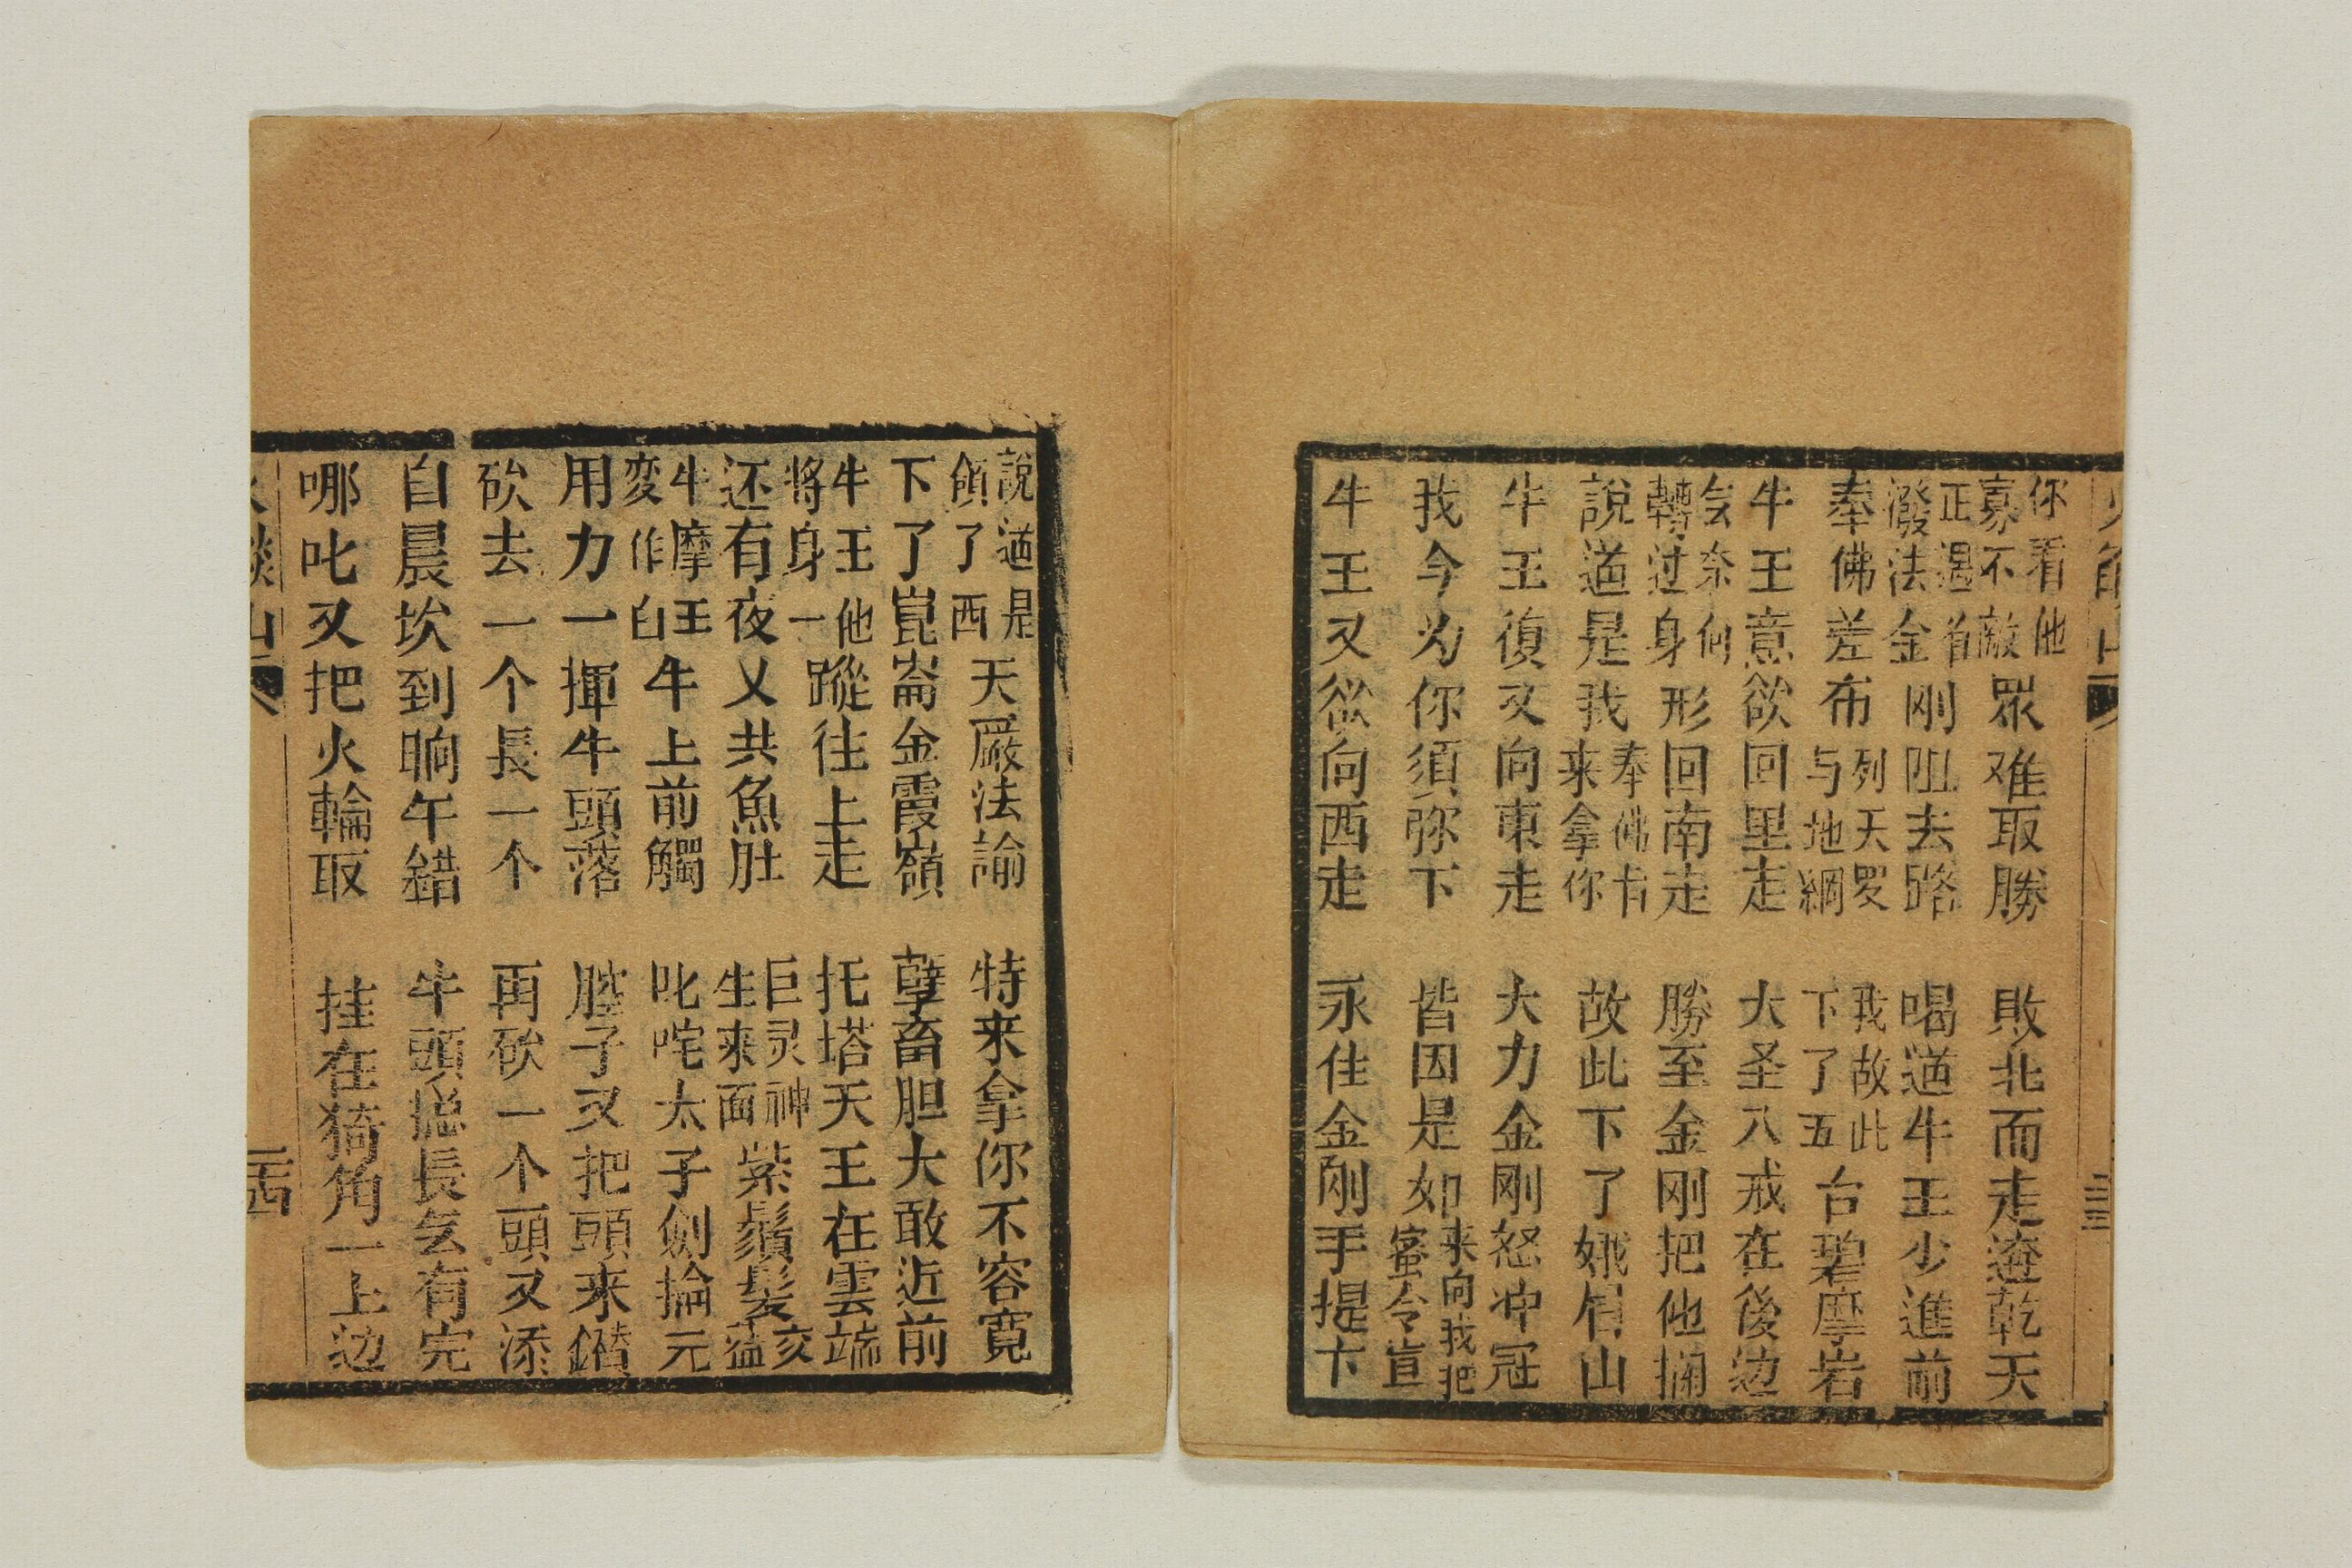 你看他寡不敵眾难取勝　敗北而走遮乾天
正遇着潑法金刚阻去路　喝道牛王少進前
奉佛差布列天罗与地網　我故此下了五台碧摩岩
牛王意欲回里走　大圣八戒在後边
奈何轉过身形回南走　勝至金刚把他攔
說道是我奉佛旨来拿你　故此下了娥眉山
牛王復又向東走　大力金刚怒冲冠
我今为你須弥下　皆因是如来向我把蜜令宣
牛王又欲向西走　永住金刚手提
三三
說道是領了西天嚴法諭　特来拿你不容寬
下了崑崙金霞嶺　孽畜胆大敢近前
牛王他將身一蹤往上走　托塔天王在雲端
还有夜叉共魚肚　巨灵神生来面紫鬚髮
牛摩王变作白牛上前觸　叱咤太子劍掄元
用力一揮牛頭落　腔子又把頭来鑽
砍去一个長一个　再砍一个頭又添
自晨坎到晌午錯　牛頭搃長乞有完
哪叱又把火輪取　挂在犄角一上边
火燄山